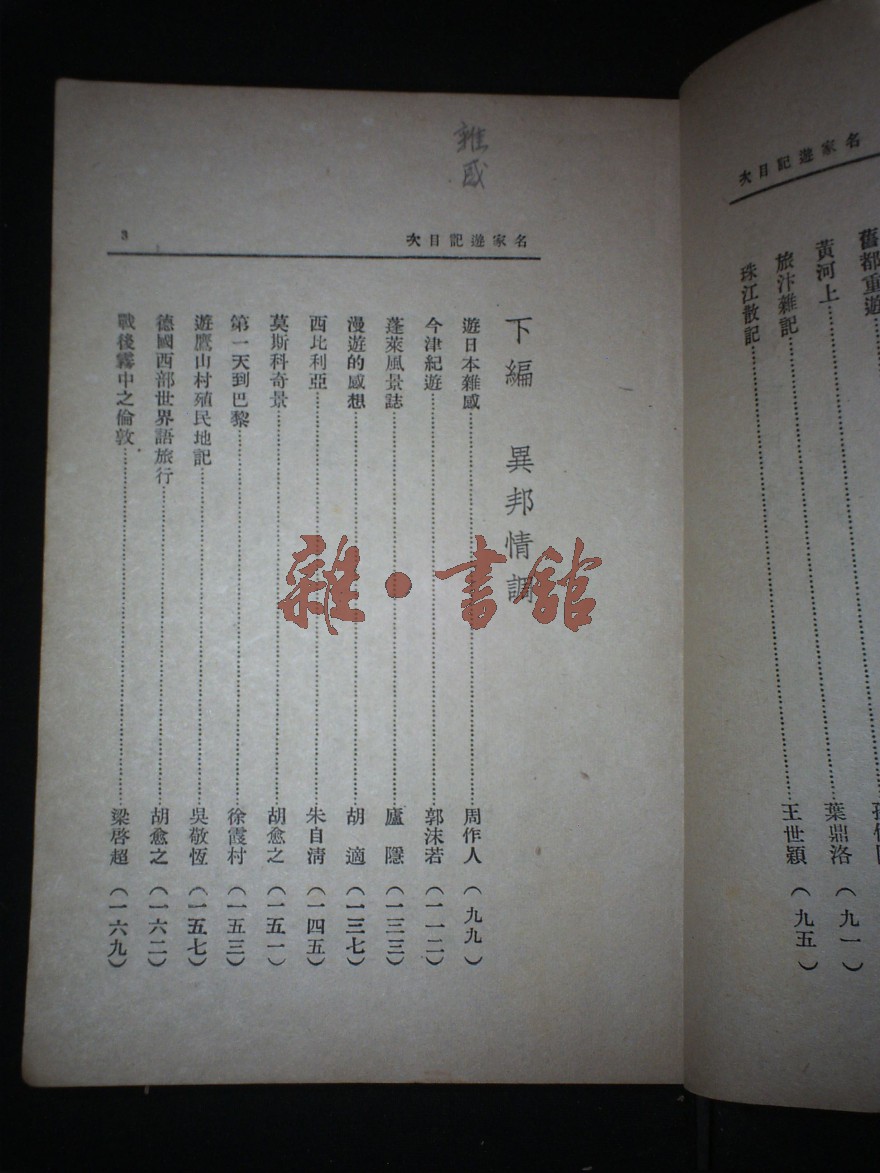 名家遊記目次
舊都重遊
黃河上
旅汴雜記……葉鼎洛（九一）
珠江散記……王世穎（九五）
雜感
名家遊記目次
3
下編 異邦情調
遊日本雜感……周作人（九九）
今津紀遊……郭沫若（一一二）
蓬萊風景誌……廬隱（一三三）
漫遊的感想……胡適（一三七）
西比利亞……朱自清（一四五）
莫斯科奇景……胡愈之（一五一）
第一天到巴黎……徐霞村（一五三）
遊鷹山村殖民地記……吳敬恆（一五七）
德國西部世界語旅行……胡愈之（一六二）
戰後霧中之倫敦……梁啓超（一六九）
雜·書館